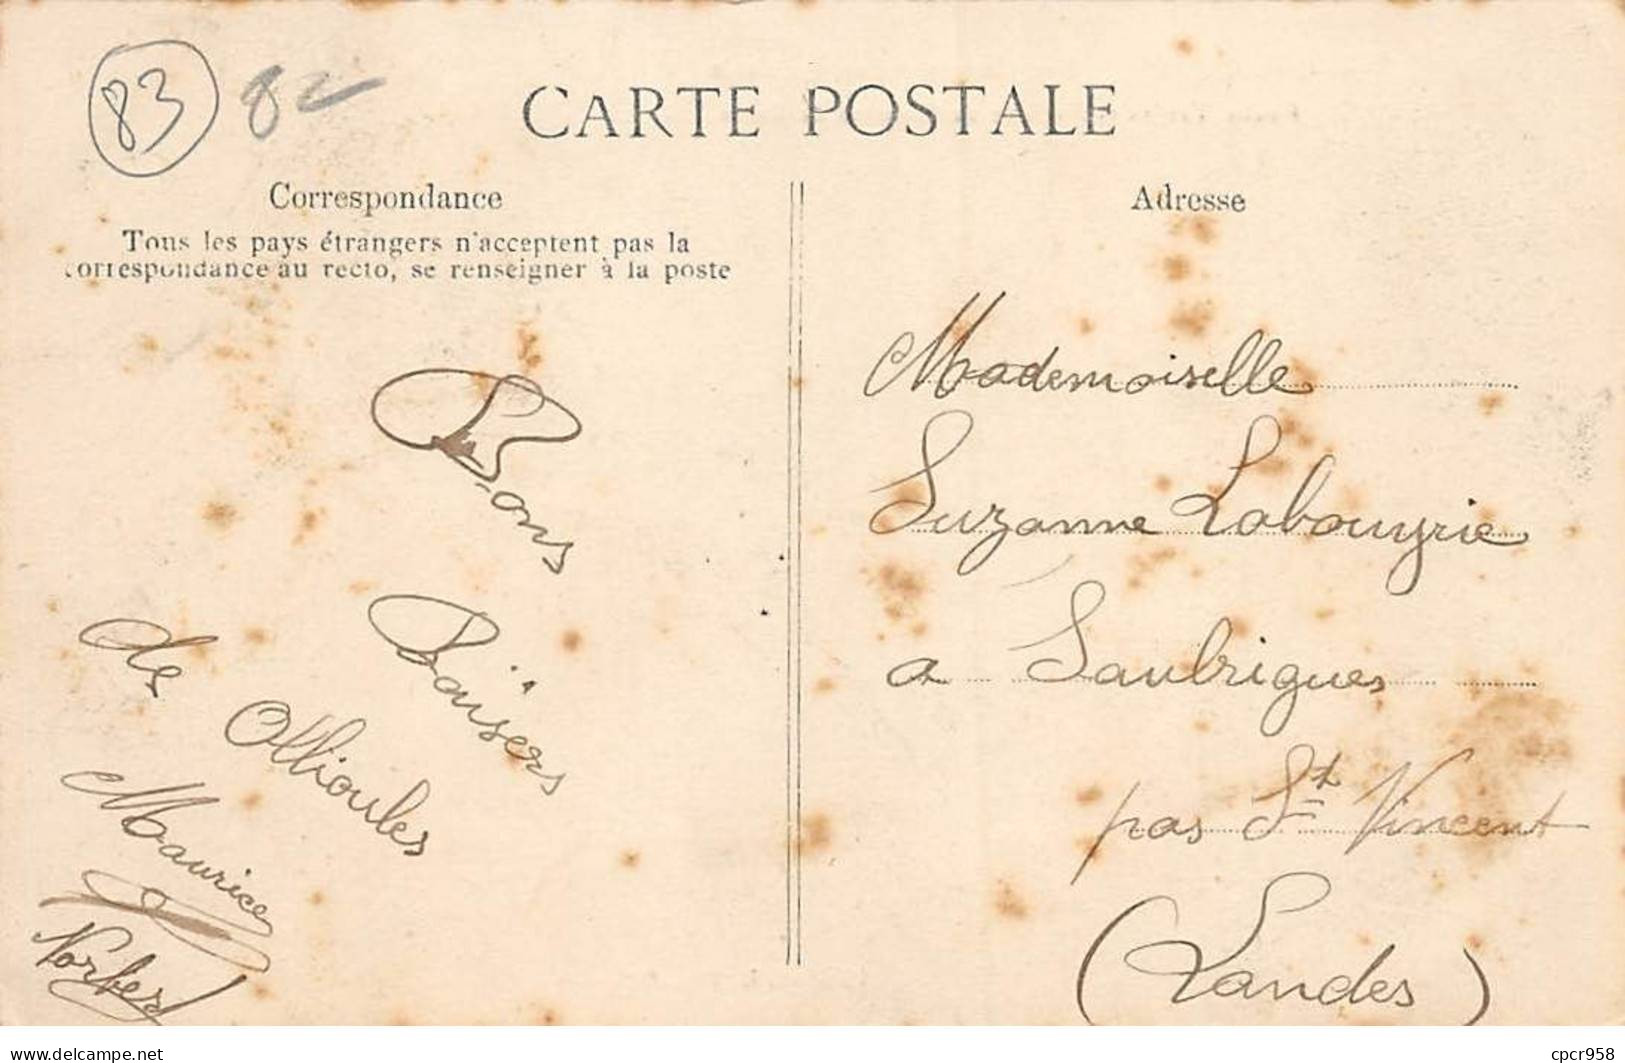 83 82
CARTE POSTALE
Correspondance
Tous les pays étrangers n'acceptent pas la
correspondance au recto, se renseigner à la poste
Bons
Baisers
de
Ollioules
Maurice
Norbert
Adresse
Mademoiselle
Suzanne Labouyrie
a Saubrigues
par St Vincent
(Landes)
delcampe.net
cpcr958